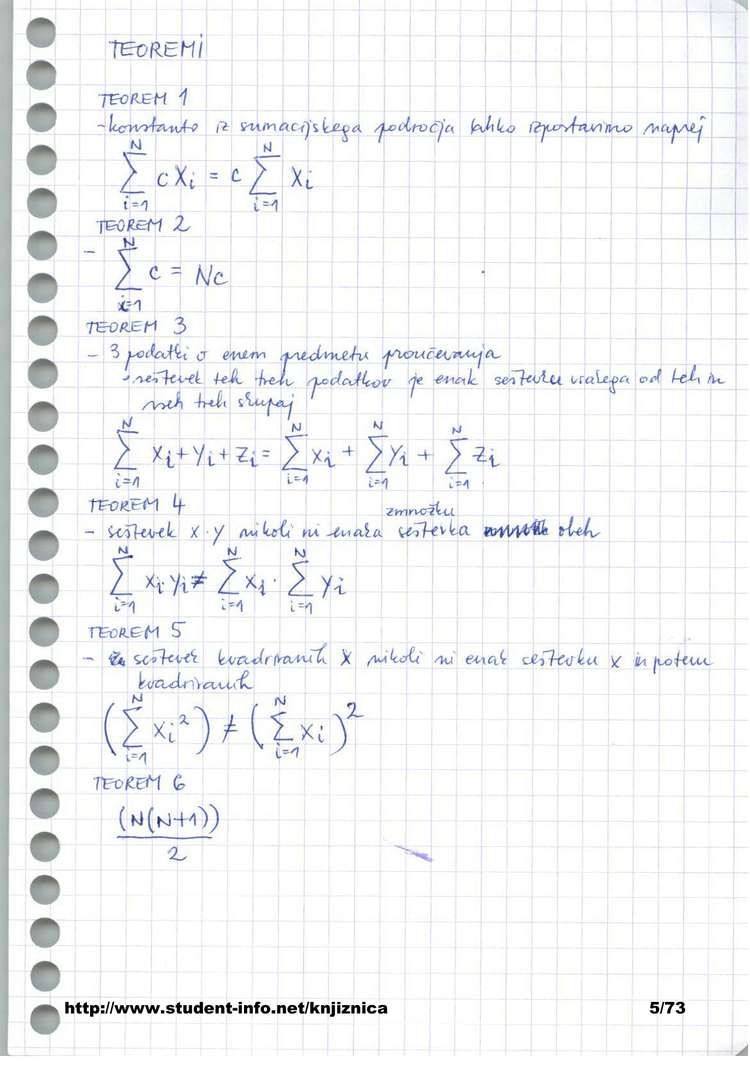 TEOREMI
TEOREM 1
- konstanto iz sumacijskega področja lahko izpostavimo naprej
∑_{i=1}^{N} c X_i = c ∑_{i=1}^{N} X_i
TEOREM 2
- ∑_{i=1}^{N} c = Nc
TEOREM 3
- 3 podatki o enem predmetu proučevanja
seštevek teh treh podatkov je enak seštevku vsakega od teh in
vseh treh skupaj
∑_{i=1}^{N} x_i + y_i + z_i = ∑_{i=1}^{N} x_i + ∑_{i=1}^{N} y_i + ∑_{i=1}^{N} z_i
TEOREM 4
zmnožku
- seštevek x · y nikoli ni enaka seštevka obeh
∑_{i=1}^{N} x_i y_i ≠ ∑_{i=1}^{N} x_i · ∑_{i=1}^{N} y_i
TEOREM 5
- seštevek kvadriranih x nikoli ni enak seštevku x in potem
kvadriranih
(∑_{i=1}^{N} x_i²) ≠ (∑_{i=1}^{N} x_i)²
TEOREM 6
(N(N+1))
2
http://www.student-info.net/knjiznica 5/73